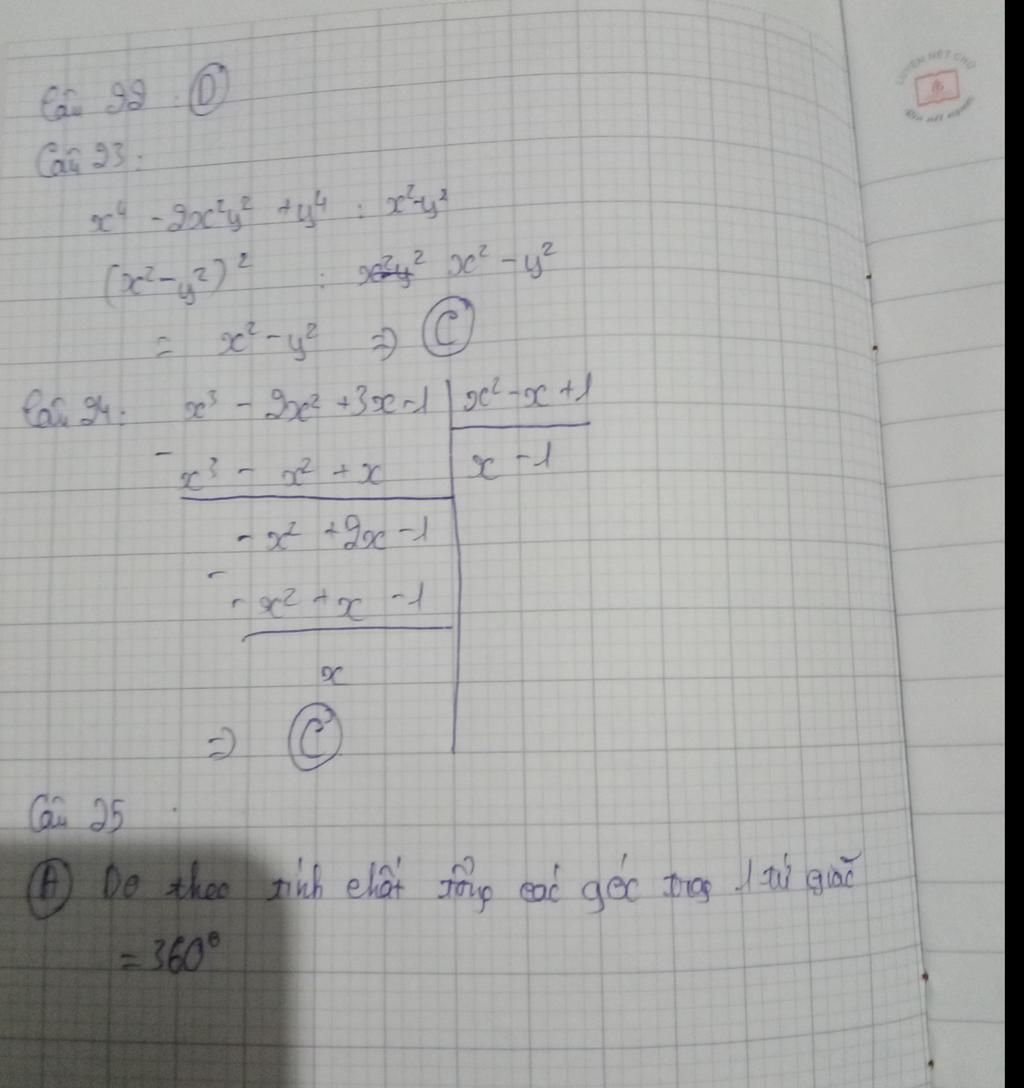 Câu 22 : D
Câu 23 :
x⁴ - 2x²y² + y⁴ : x² - y²
(x² - y²)² : x² - y²
= x² - y² => C
Câu 24 : x³ - 2x² + 3x - 1 | x² - x + 1
- x³ - x² + x | x - 1
- x² + 2x - 1
- - x² + x - 1
x
=> C
Câu 25
A Do theo tính chất tổng các góc trog 1 tứ giác
= 360°
LUYỆN NÉT CHỮ
RÈN NẾT NGƯỜI